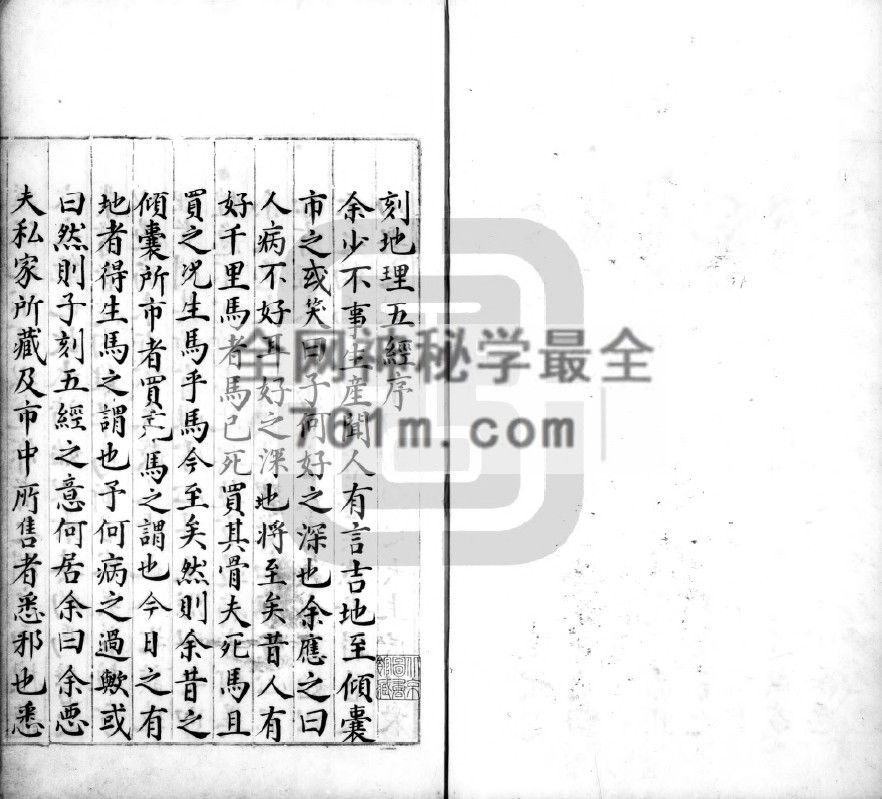 刻地理五經序
余少不事生産聞人有言吉地至傾囊
市之或笑曰子何好之深也余應之曰
人病不好耳好之深地將至矣昔人有
好千里馬者馬已死買其骨夫死馬且
買之况生馬乎馬今至矣然則余昔之
傾囊所市者買死馬之謂也今日之有
地者得生馬之謂也予何病之過歟或
曰然則子刻五經之意何居余曰余惡
夫私家所藏及市中所售者悉邪也悉
全网神秘学最全
761m.com